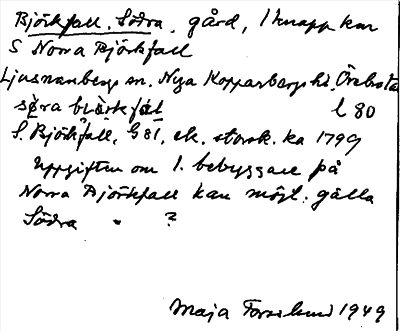 Björkfall, Södra, gård, 1 knapp km
S Norra Björkfall
Ljusnarsbergs sn. Nya Kopparbergs hd, Örebro
L 80
S. Björkfall, G 81, ek. storsk. ka 1799
Uppgiften om 1. bebyggare på
Norra Björkfall kan möjl. gälla
Södra " ?
Maja 1949